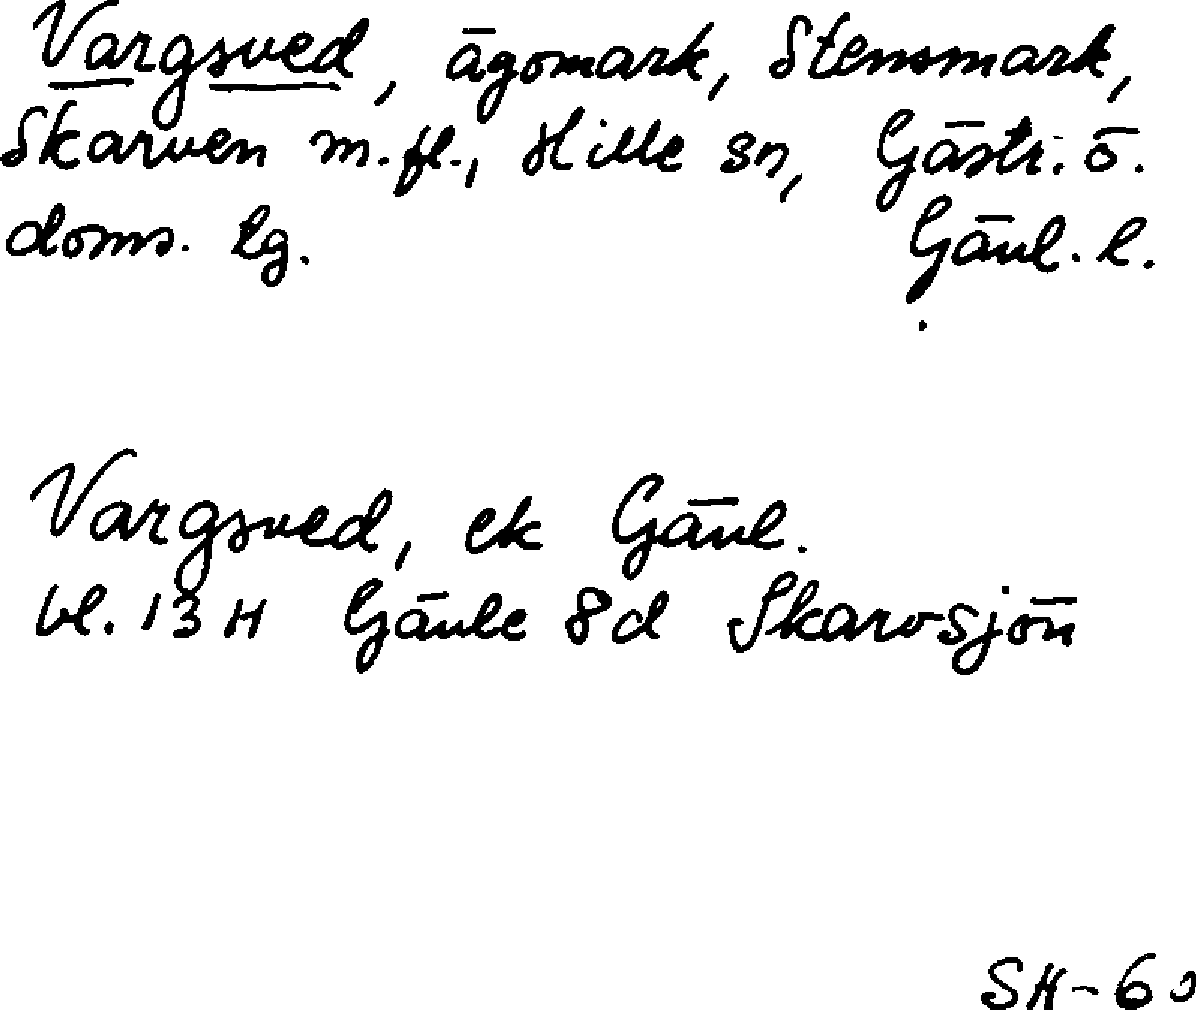 Vargsved, ägomark, Stensmark,
Skarven m.fl., Hille sn, Gästr. ö.
doms. lg. Gävl. l.
Vargsved, ek Gävl.
bl. 13 H Gävle 8d Skarvsjön
SH-60